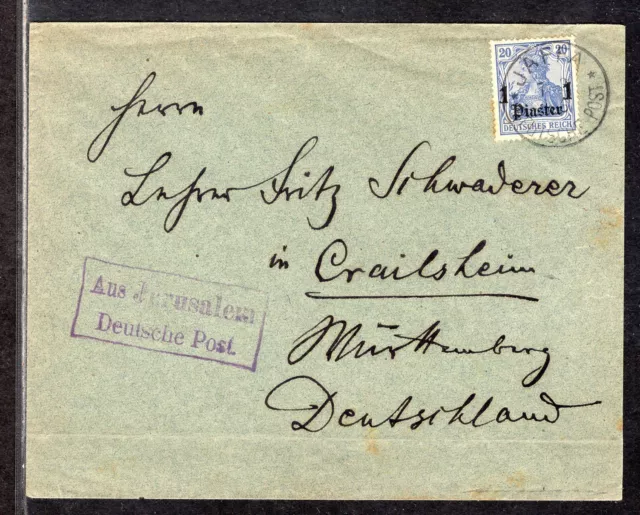 20 20
1 1
Piaster
DEUTSCHES REICH
JAFFA
DEUTSCHE POST
Herrn
Lehrer Fritz Schwaderer
in Crailsheim
Württemberg
Deutschland
Aus Jerusalem
Deutsche Post.